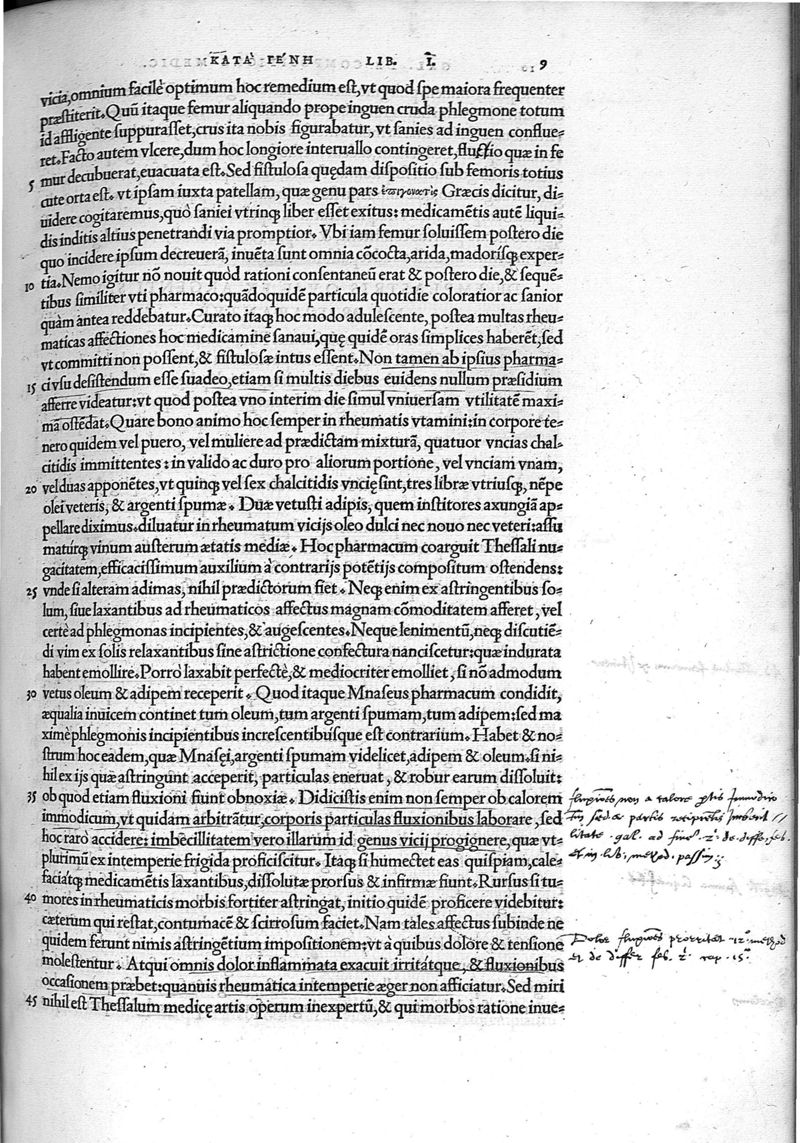 ΚΑΤΑ ΓΕΝΗ LIB. I. 9
vicia,omnium facilè optimum hoc remedium est,vt quod spe maiora frequenter
præstiterit.Quũ itaque femur aliquando prope inguen cruda phlegmone totum
id affligente suppurasset,crus ita nobis figurabatur, vt sanies ad inguen conflue=
ret.Facto autem vlcere,dum hoc longiore interuallo contingeret,fluxio quæ in fe
5 mur decubuerat,euacuata est.Sed fistulosa quędam dispositio sub femoris totius
cute orta est. vt ipsam iuxta patellam, quæ genu pars ἐπιγονατὶς Græcis dicitur, di=
uidere cogitaremus,quò saniei vtrinq; liber esset exitus: medicamẽtis autẽ liqui=
dis inditis altius penetrandi via promptior. Vbi iam femur soluissem postero die
quo incidere ipsum decreuerã, inuẽta sunt omnia cõcocta,arida,madorisq; exper=
10 tia.Nemo igitur nõ nouit quòd rationi consentaneũ erat & postero die,& sequẽ=
tibus similiter vti pharmaco:quãdoquidẽ particula quotidie coloratior ac sanior
quàm antea reddebatur.Curato itaq; hoc modo adulescente, postea multas rheu=
maticas affectiones hoc medicamine sanaui,quę quidẽ oras simplices haberẽt;sed
vt committi non possent,& fistulosæ intus essent.Non tamen ab ipsius pharma=
15 ci vsu desistendum esse suadeo,etiam si multis diebus euidens nullum præsidium
afferre videatur:vt quod postea vno interim die simul vniuersam vtilitatẽ maxi=
mã ostẽdat.Quare bono animo hoc semper in rheumatis vtamini:in corpore te=
nero quidem vel puero, vel muliere ad prædictam mixturã, quatuor vncias chal=
citidis immittentes: in valido ac duro pro aliorum portione, vel vnciam vnam,
20 vel duas apponẽtes,vt quinq; vel sex chalcitidis vncię sint,tres libræ vtriusq;, nẽpe
olei veteris, & argenti spumæ. Duæ vetusti adipis, quem institores axungiã ap=
pellare diximus.diluatur in rheumatum vicijs oleo dulci nec nouo nec veteri:assu
matúrq; vinum austerum ætatis mediæ. Hoc pharmacum coarguit Thessali nu=
gacitatem,efficacissimum auxilium à contrarijs potẽtijs compositum ostendens:
25 vnde si alteram adimas, nihil prædictorum fiet. Neq; enim ex astringentibus so=
lum, siue laxantibus ad rheumaticos affectus magnam cõmoditatem afferet, vel
certè ad phlegmonas incipientes,& augescentes.Neque lenimentũ,neq; discutiẽ=
di vim ex solis relaxantibus sine astrictione confectura nanciscetur:quæ indurata
habent emollire.Porrò laxabit perfectè,& mediocriter emolliet, si nõ admodum
30 vetus oleum & adipem receperit. Quod itaque Mnaseus pharmacum condidit,
æqualia inuicem continet tum oleum,tum argenti spumam,tum adipem:sed ma
ximè phlegmonis incipientibus increscentibusque est contrarium. Habet & no=
strum hoc eadem,quæ Mnasęi,argenti spumam videlicet,adipem & oleum.si ni=
hil ex ijs quæ astringunt acceperit, particulas eneruat, & robur earum dissoluit:
35 ob quod etiam fluxioni fiunt obnoxiæ. Didicistis enim non semper ob calorem
immodicum,vt quidam arbitrãtur,corporis particulas fluxionibus laborare, sed
hoc rarò accidere: imbecillitatem vero illarum id genus vicij progignere,quæ vt=
plurimũ ex intemperie frigida proficiscitur. Itaq; si humectet eas quispiam,cale=
faciátq; medicamẽtis laxantibus,dissolutæ prorsus & infirmæ fiunt.Rursus si tu=
40 mores in rheumaticis morbis fortiter astringat, initio quidẽ proficere videbitur:
cæterum qui restat, contumacẽ & scirrosum faciet.Nam tales affectus subinde ne
quidem ferunt nimis astringẽtium impositionem:vt à quibus dolore & tensione
molestentur. Atqui omnis dolor inflammata exacuit irritátque, & fluxionibus
occasionem præbet:quanuis rheumatica intemperie æger non afficiatur.Sed miri
45 nihil est Thessalum medicę artis operum inexpertũ,& qui morbos ratione inue=
non a calore
sed a partis recipientis
Gal. ad
et in lib. method. passim
Dolor fluxiones
et de differ. feb.